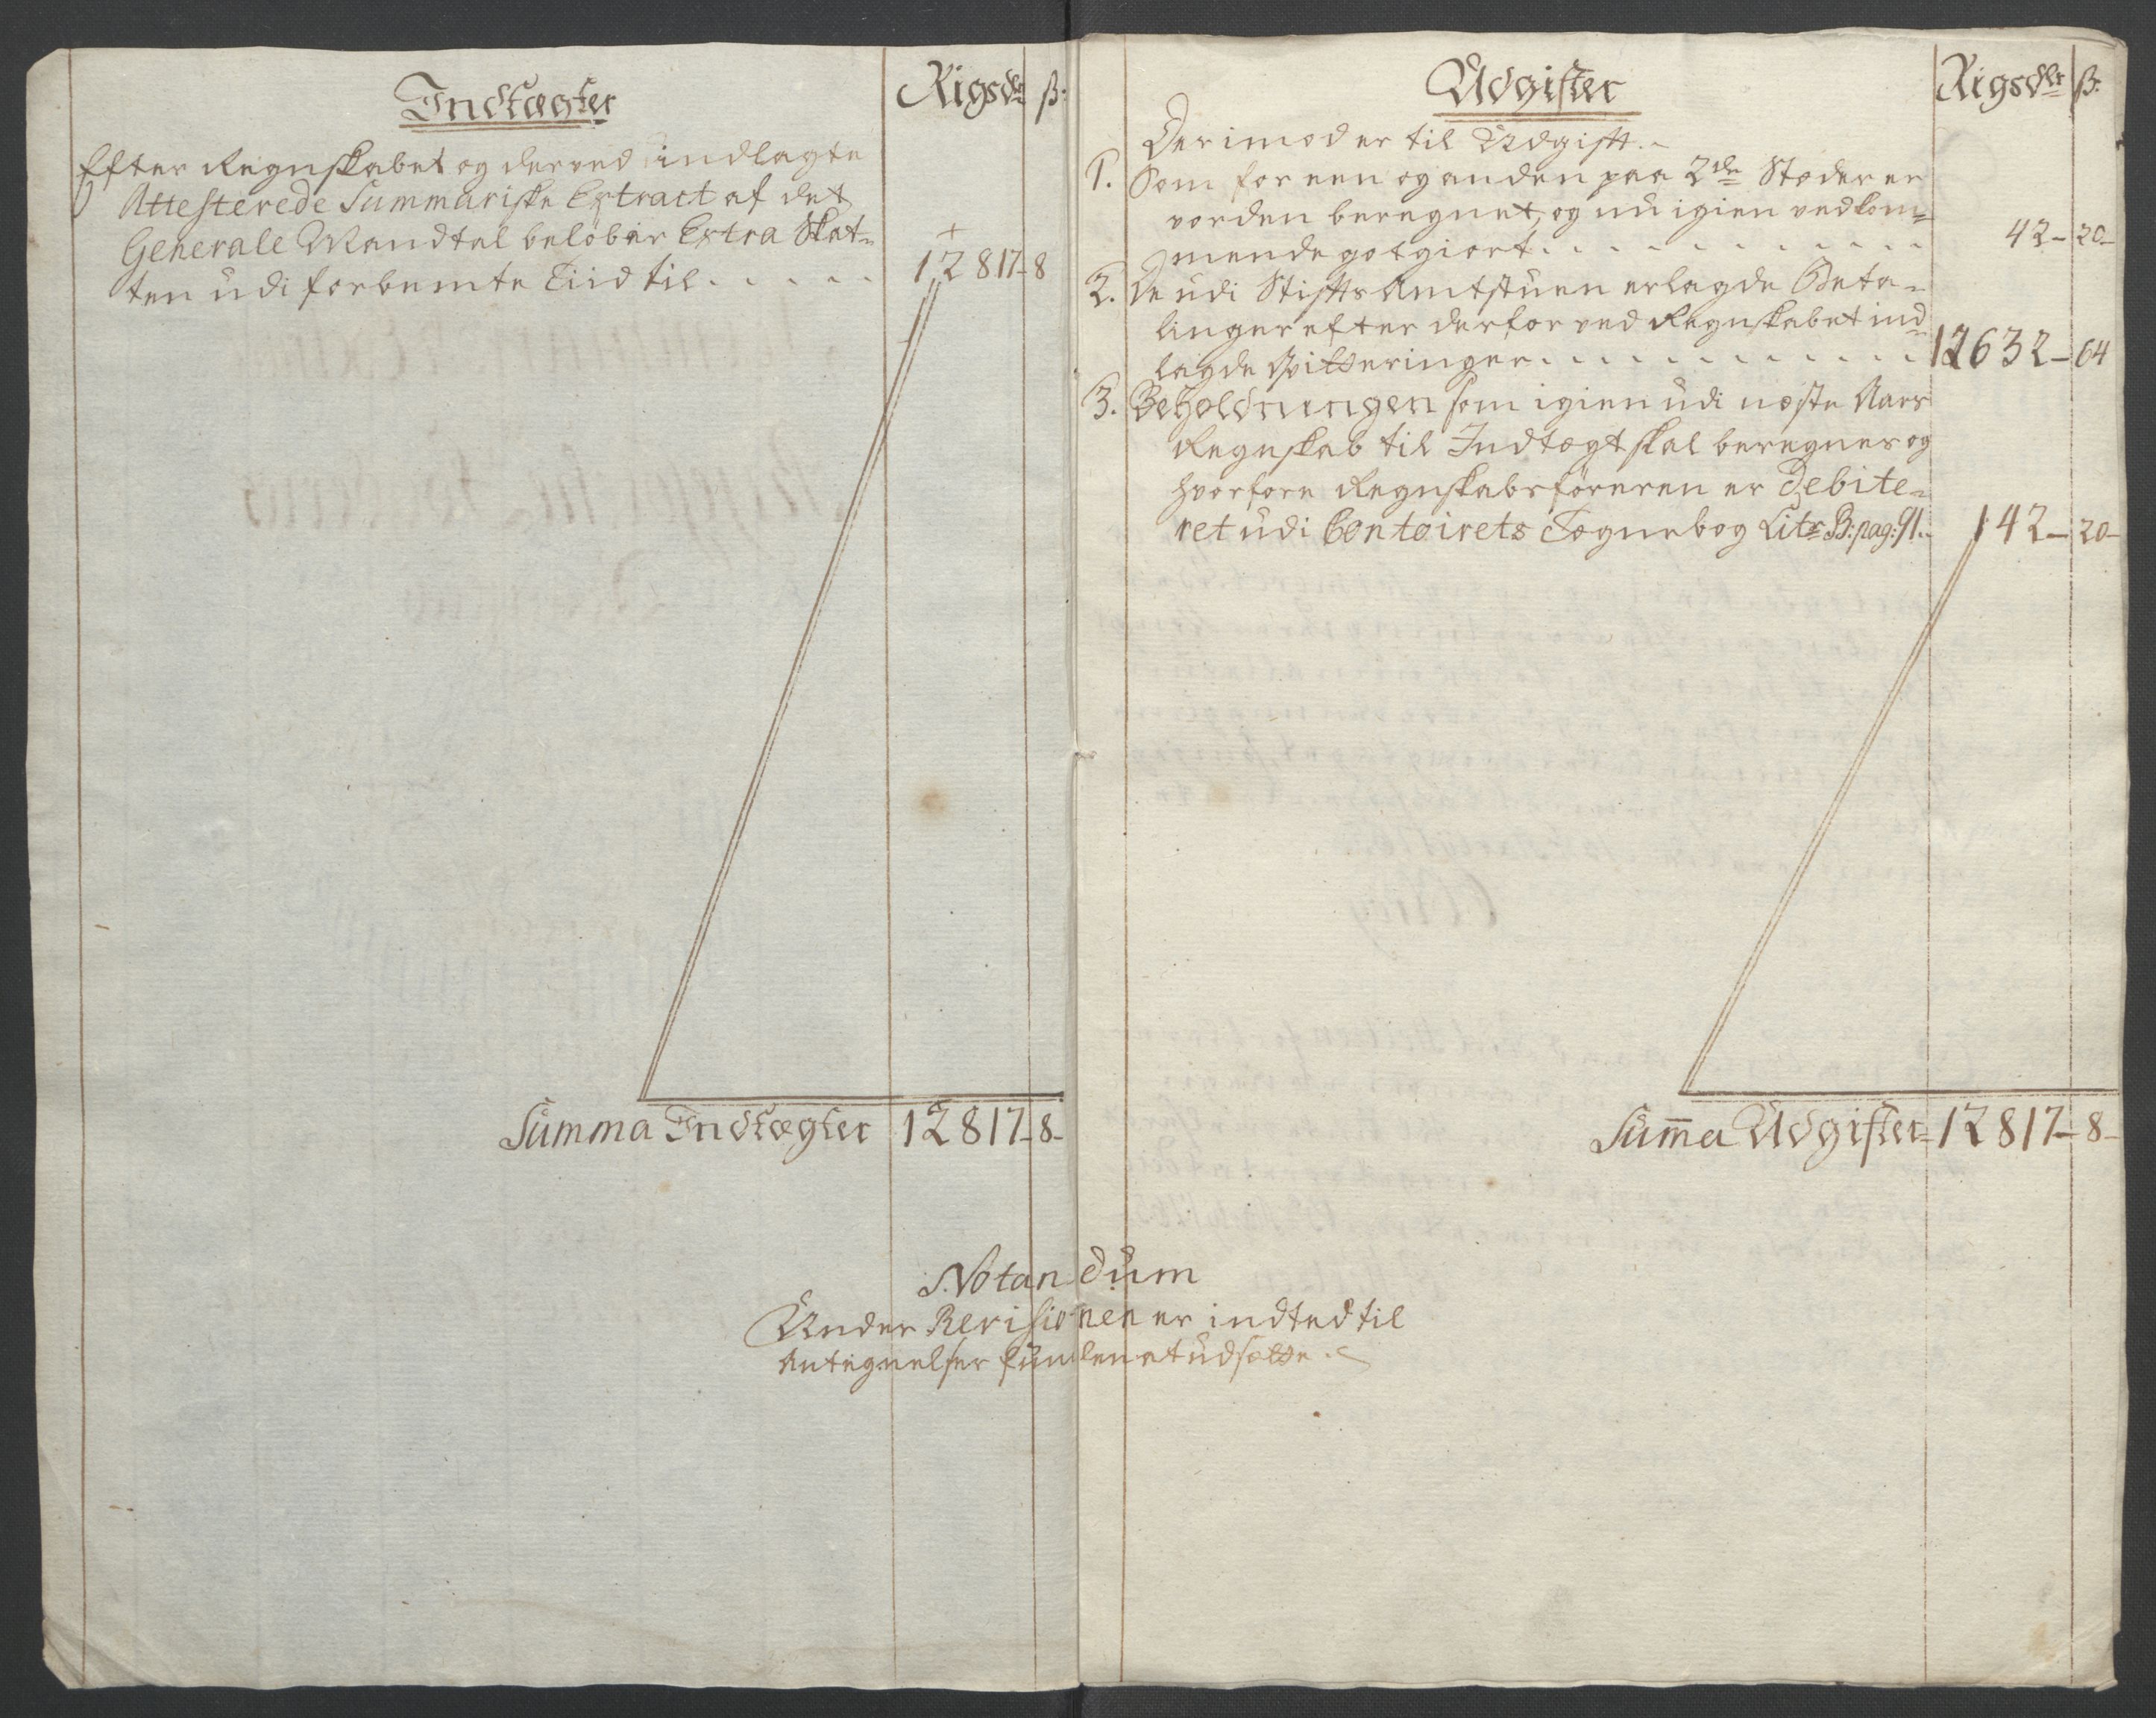 Indtægter
Rigsdr ß:
Efter Regnskabet og derved indlagte
Attesterede Summariske Extract af det
Generale Mandtal beløber Extra Skat-
ten udi forbemte Tiid til . . . . . 12817 - 8
Summa Indtægter 12817 - 8 -
Udgifter
Rigsdlr ß:
Derimod er til Udgift.
1. Som for een og anden paa 2de Stæder er
vorden beregnet, og nu igien vedkom-
mende godtgiort . . . . . . 42 - 20 -
2. De udi Stiftts Amtstuen erlagde Beta-
linger efter derfor ved Regnskabet ind-
lagde Qvitteringer . . . . . . 12632 - 64
3. Beholdningen som igien udi næste Aars
Regnskab til Indtægt skal beregnes og
hvorfore Regnskabsføreren er Debite-
ret udi Contoirets Tegnebog Litr B: pag: 91. 142 - 20 -
Summa Udgifter 12817 - 8 -
Notandum
Under Revisionen er indted til
Antegnelser funden at udsætte.